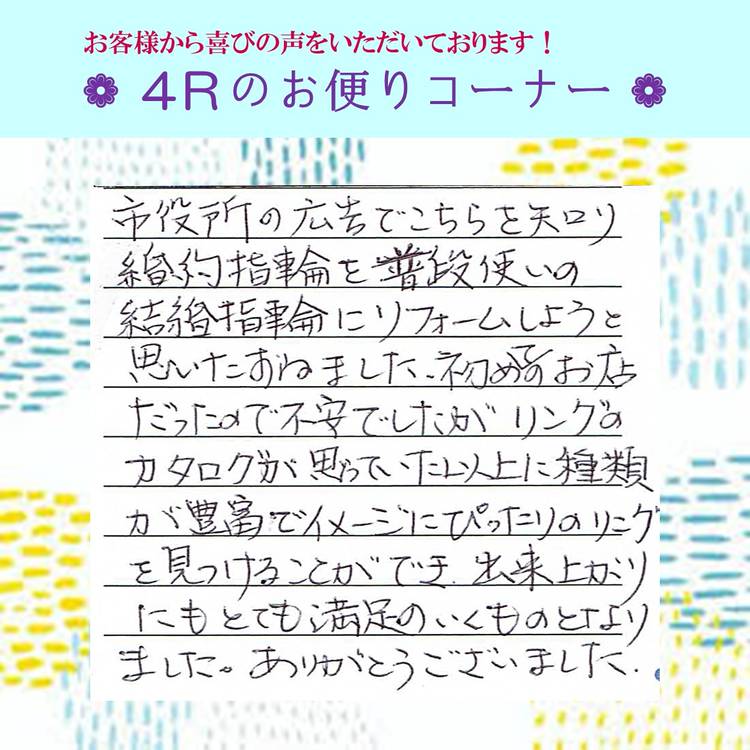 お客様から喜びの声をいただいております！
❁ 4Rのお便りコーナー ❁
市役所の広告でこちらを知り
婚約指輪を普段使いの
結婚指輪にリフォームしようと
思いたずねました、初めてのお店
だったので不安でしたが リングの
カタログが思っていた以上に種類
が豊富でイメージにぴったりのリング
を見つけることができ、出来上がり
にもとても満足のいくものとなり
ました。ありがとうございました.